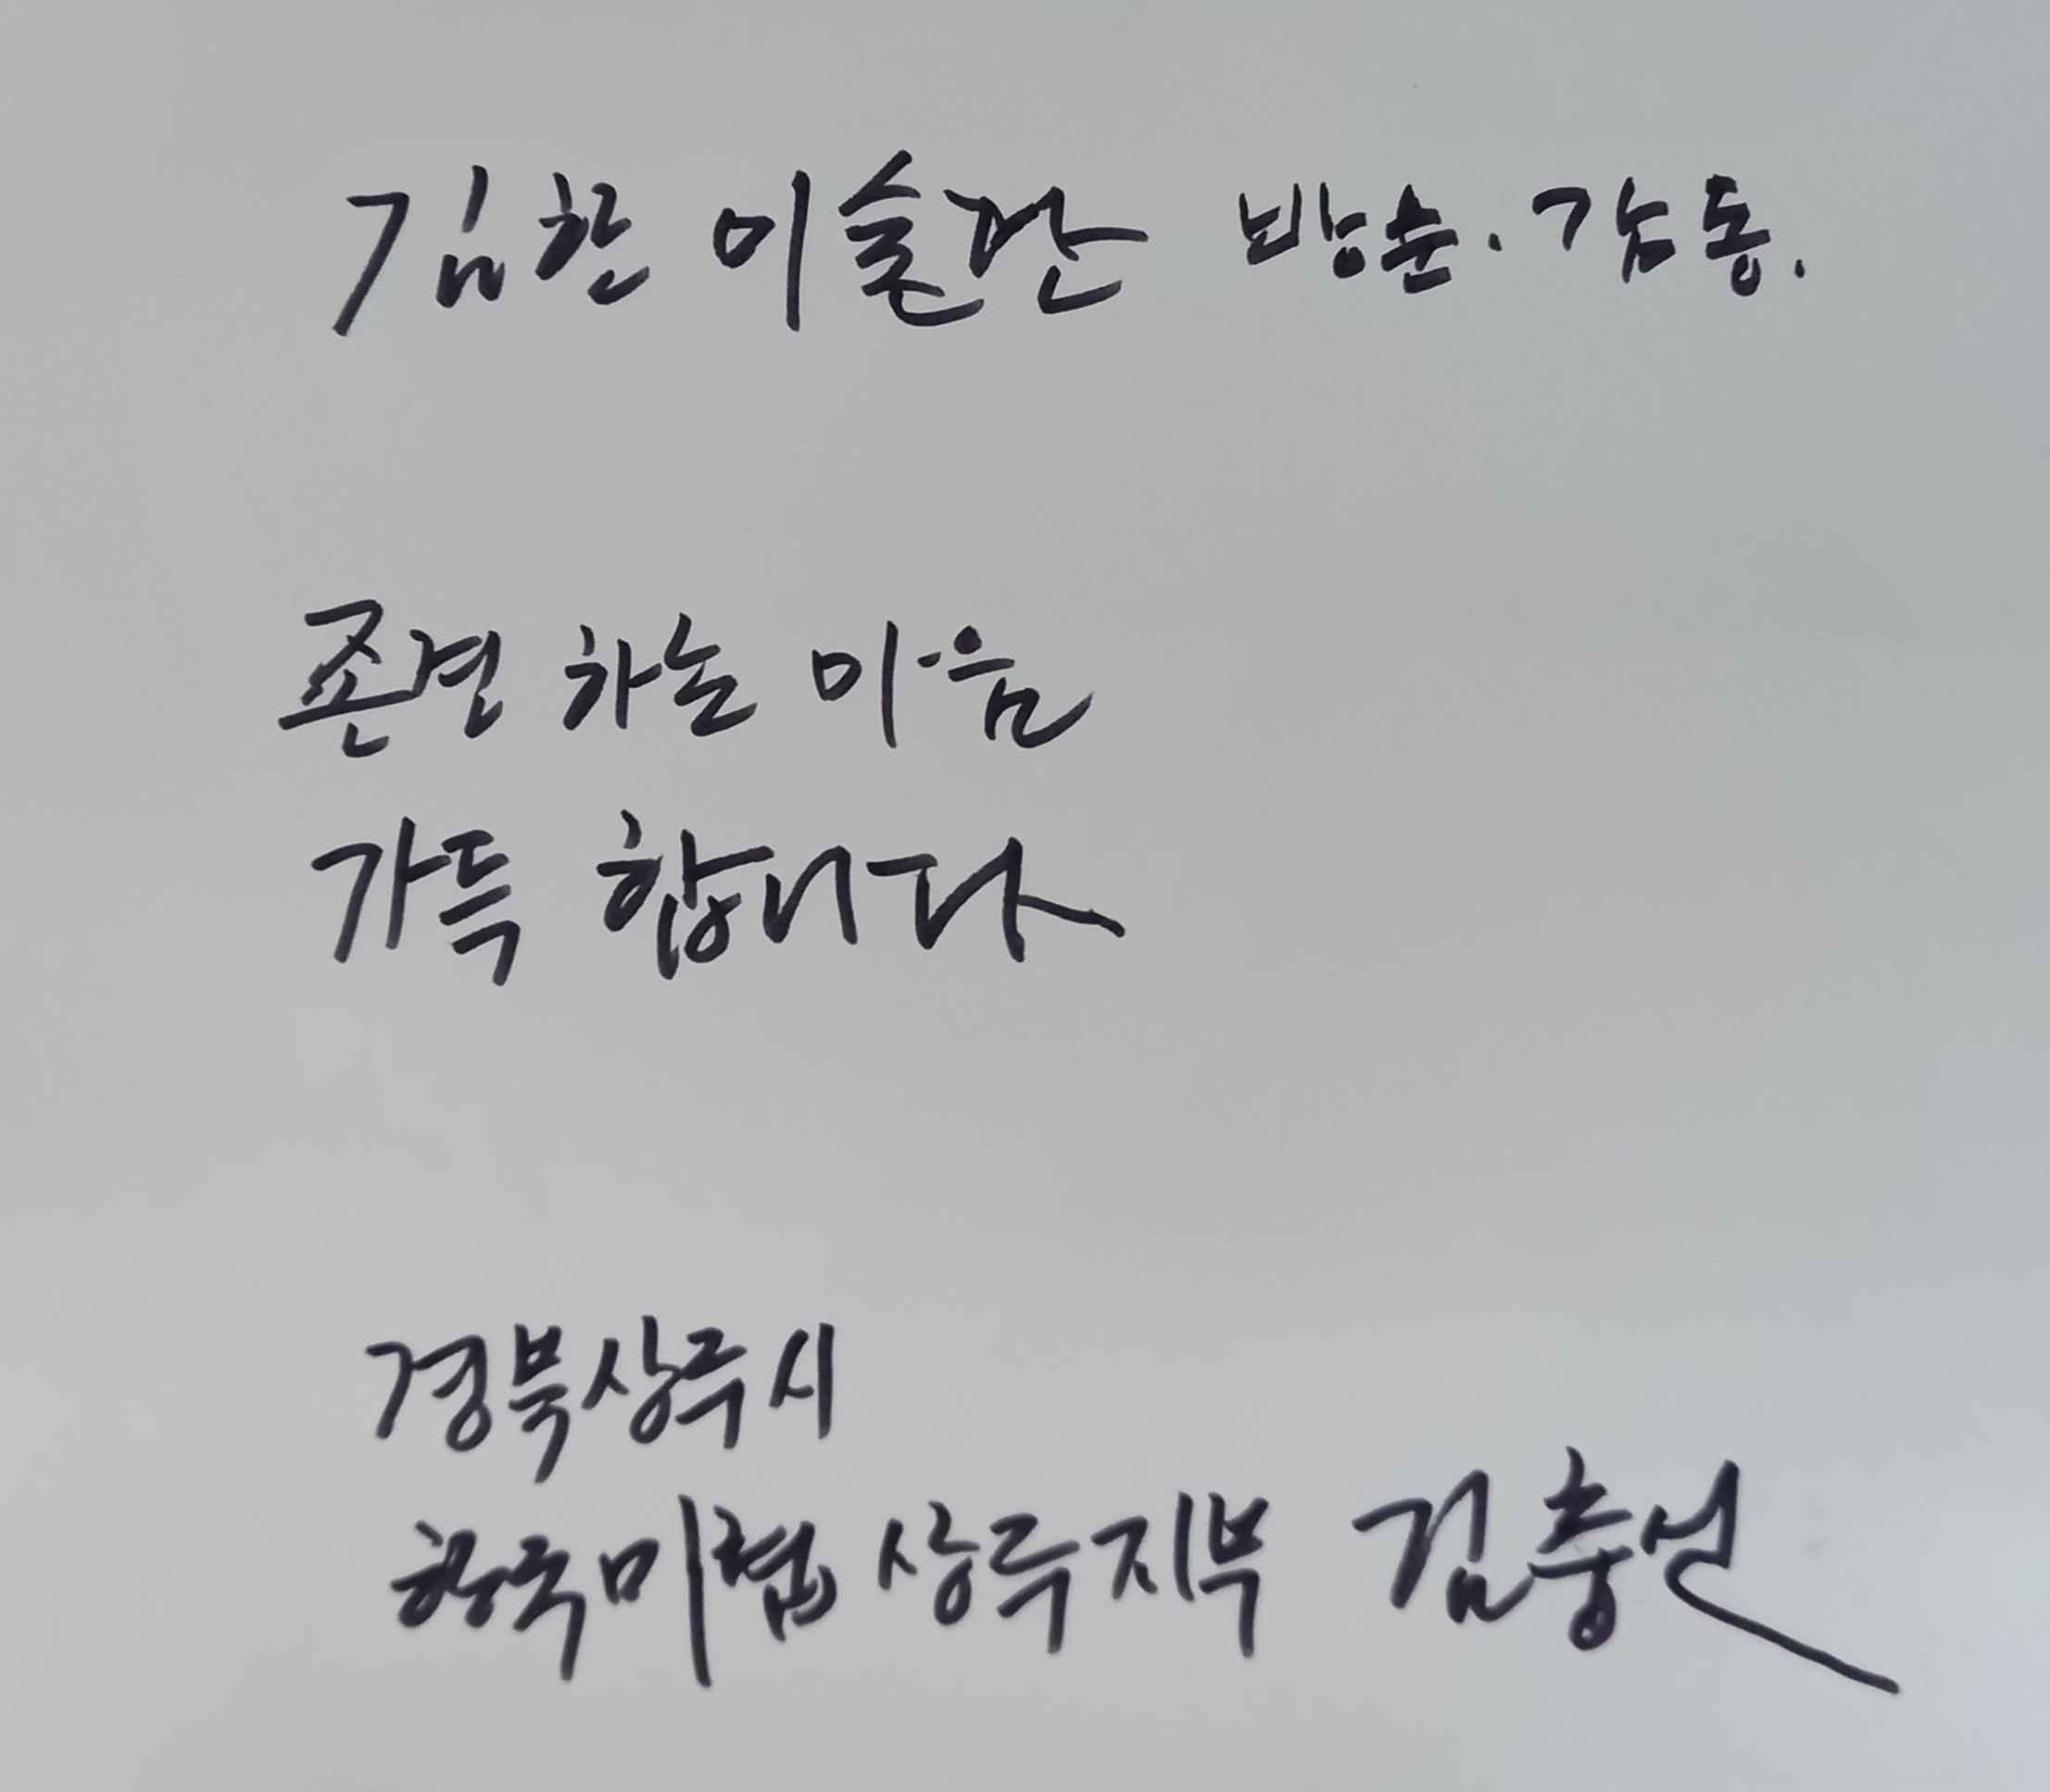 미술관 방문. 감동.
존경 하는 마음
가득 합니다
경북상주시
한국미협 상주지부 김충선